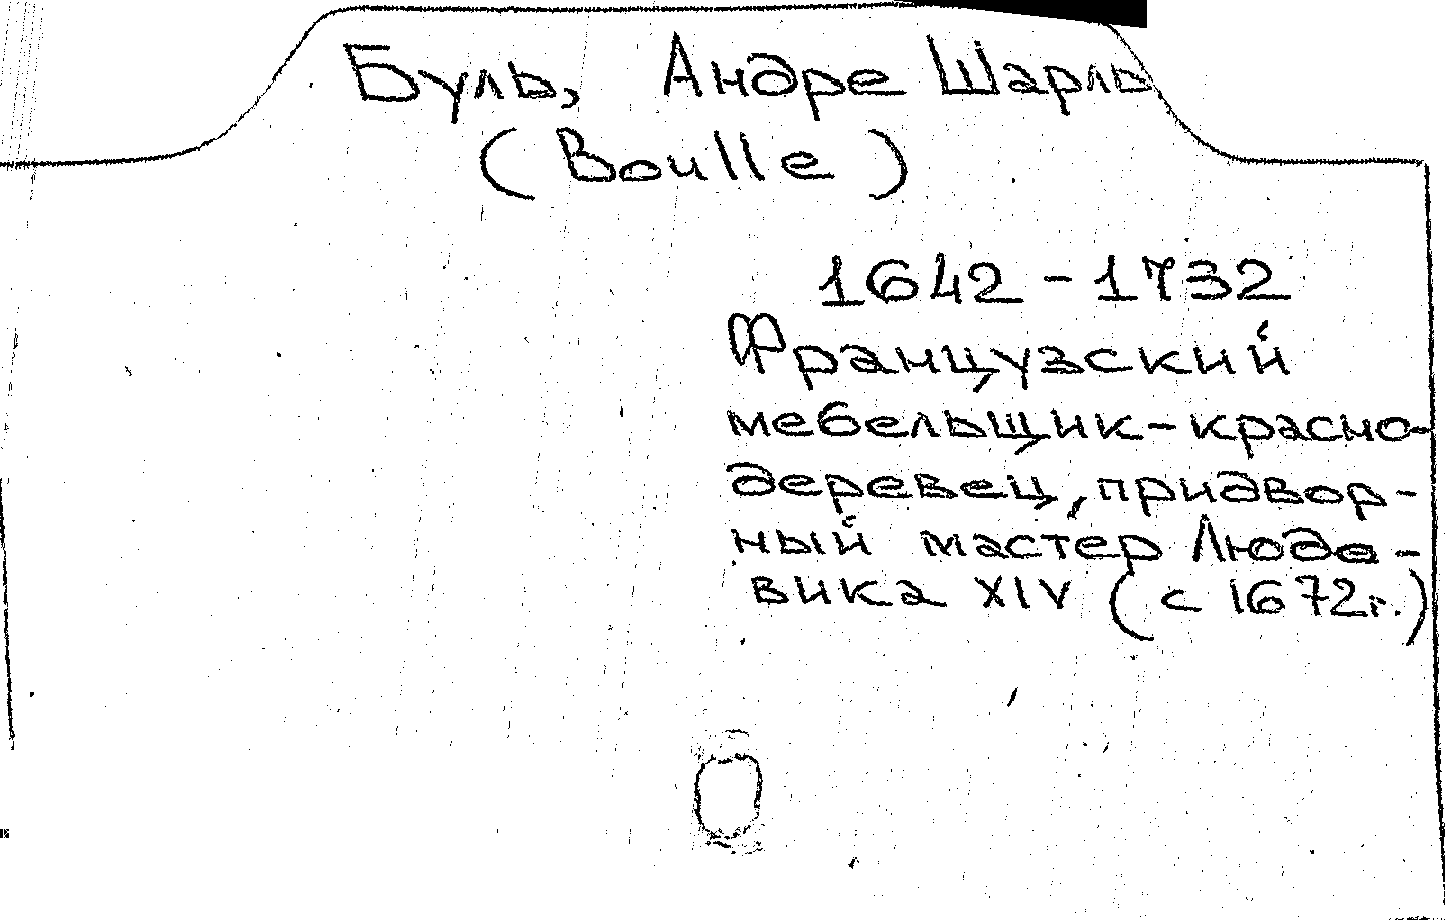 Буль, Андре Шарль
(Boulle)
1642-1732
Французский
мебельщик-красно-
деревец, придвор-
ный мастер Людо-
вика XIV (с 1672г.)